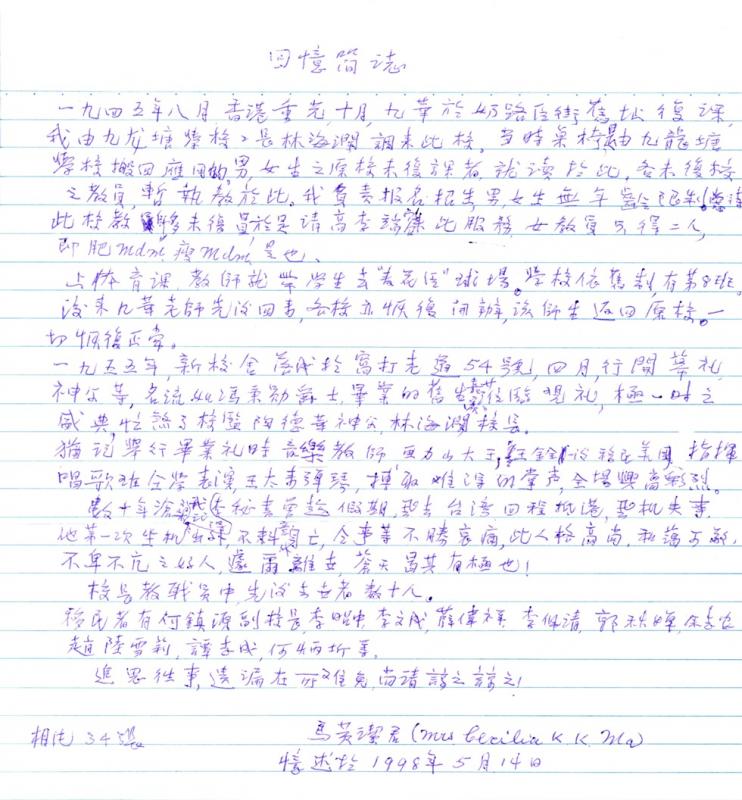 回憶簡誌
一九四五年八月香港重光,十月,九華於奶路臣街舊址復課,
我由九龙塘學校,是林海瀾調來此校。當時果栏由九龍塘
學校搬回應用的,男,女生之原校未復課者,就读於此,各未復校
之教員,暫執教於此。我負責报名招生男,女生無年齡限制。
此校教師未復員於是请高李 此服務女教員只得二人,
即肥mdm,瘦mdm 是也。
上体育课,教師就帶學生去"花园"球場。學校依舊制,有第8班。
後来九華老師先後回来,各校亦恢復開辦,該師生返回原校。一
切恢復正常。
一九五五年,新校舍落成於窩打老道54號,四月,行開幕礼,
神父等,名流如馮秉芬爵士,畢業的舊生 觀礼,極一時之
盛典,忙煞了校監陶德 神父,林海瀾校長。
猶記舉行畢業礼時音樂教師 移民美國 指揮
唱歌班全 表演,王太 弹琴,博取 的掌声,全場興高彩烈。
數十年 秘書 趁假期,去台湾回程抵港,飛机失事,
他第一次坐机 ,不料 亡,令 等不勝哀痛,此人格高尚,和藹 ,
不卑不亢之好人,遽爾離世,蒼天曷其有極也!
校長教職員中,先後去世者数十人。
移民者有何鎮 副校長,李昭 ,李文成,薛偉祥,李佩清,郭秋暉,
趙陸雪莉,譚 成,何炳圻等。
追思往事,遺漏在所难免,尚请諒之諒之!
相片34張 馬 潔君(Mrs Cecilia K. K. Ma)
憶述於1998年5月14日